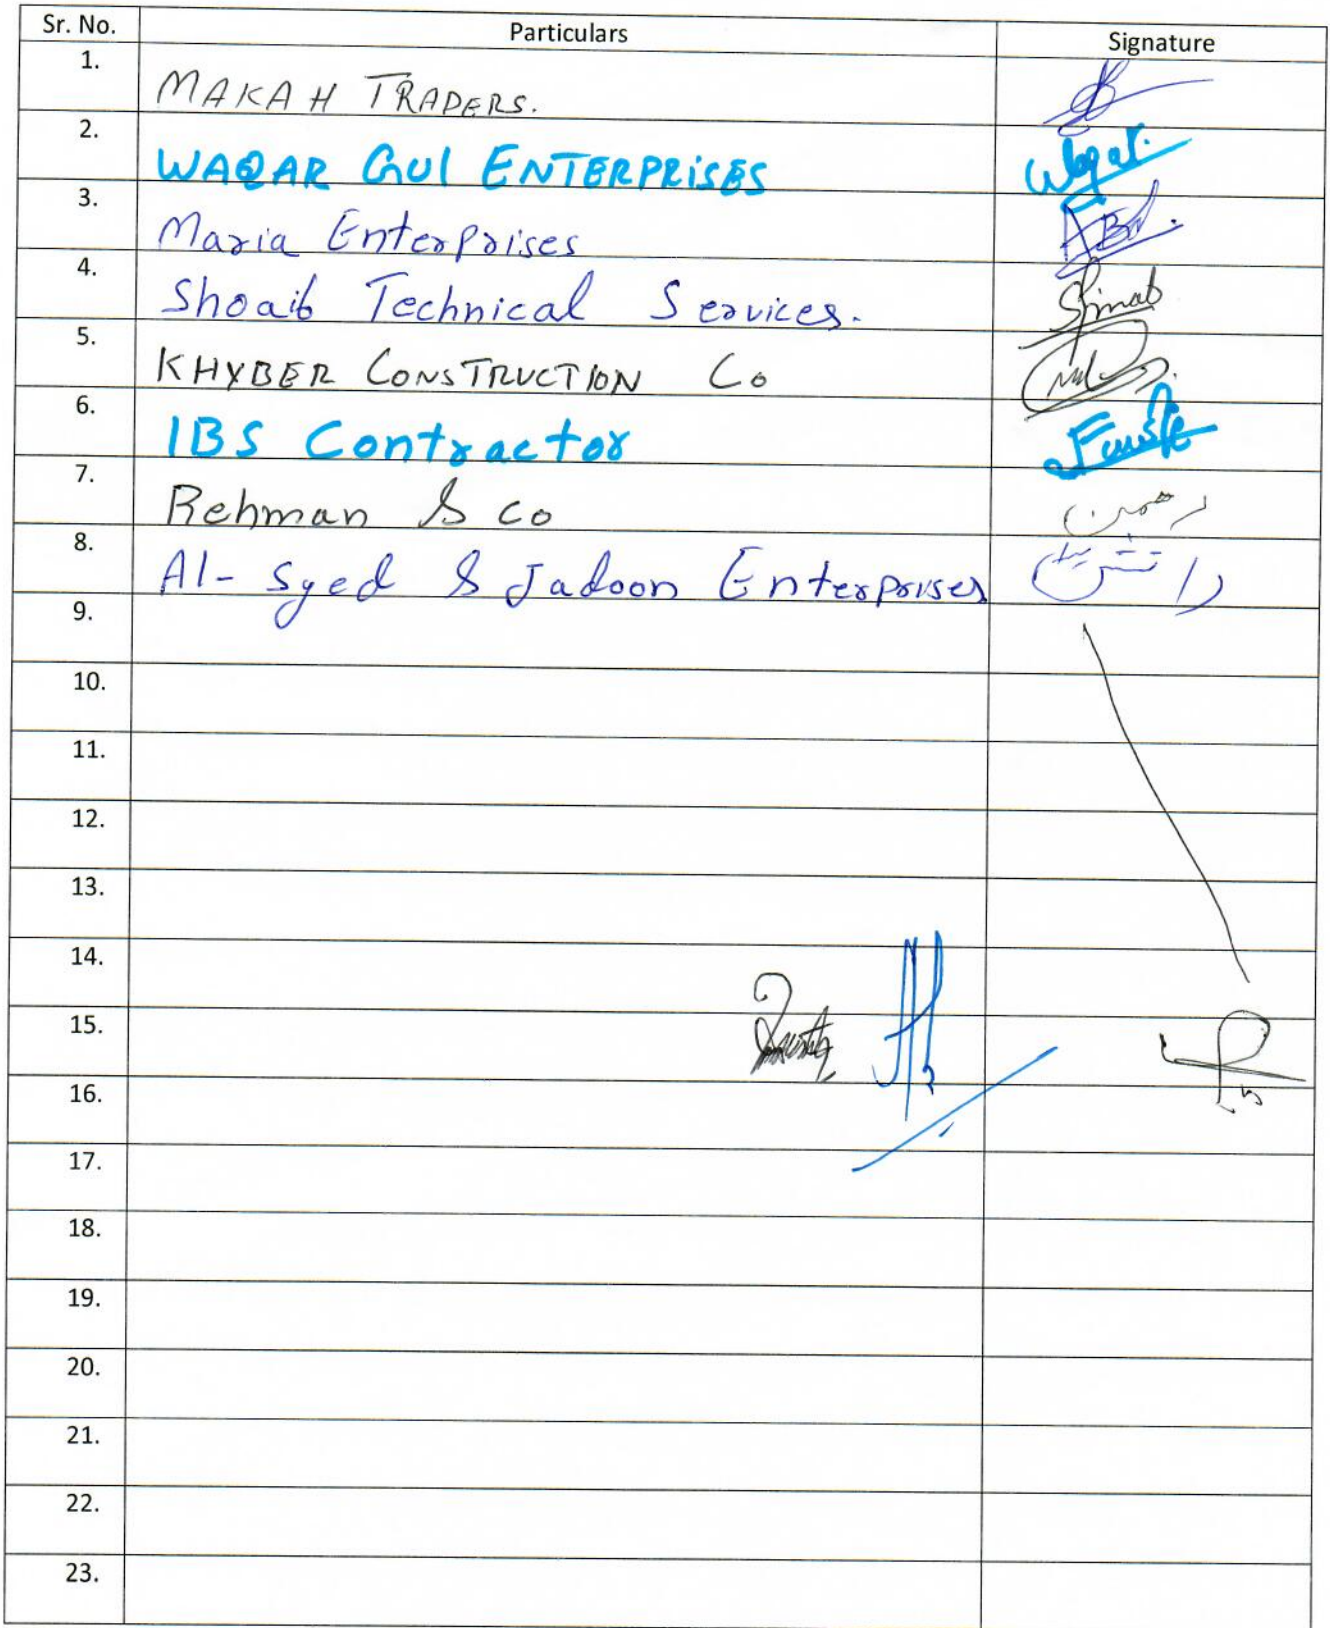 Sr. No. Particulars Signature
1. MAKAH TRADERS.
2. WAQAR GUl ENTERPRiSES Waqar.
3. Maria Enterprises
4. Shoaib Technical Services.
5. KHYBER CONSTRUCTION Co
6. IBS Contractor
7. Rehman & co رحمن
8. Al-Syed & Jadoon Enterprises
9.
10.
11.
12.
13.
14.
15.
16.
17.
18.
19.
20.
21.
22.
23.